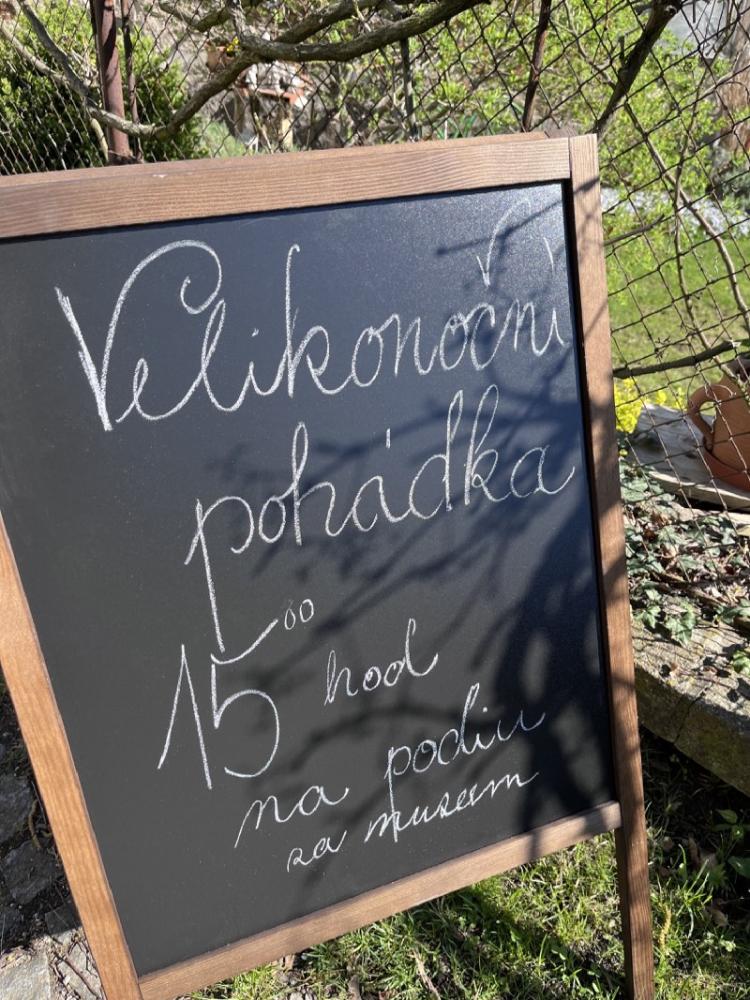 Velikonoční
pohádka
15⁰⁰ hod
na podiu
za museem